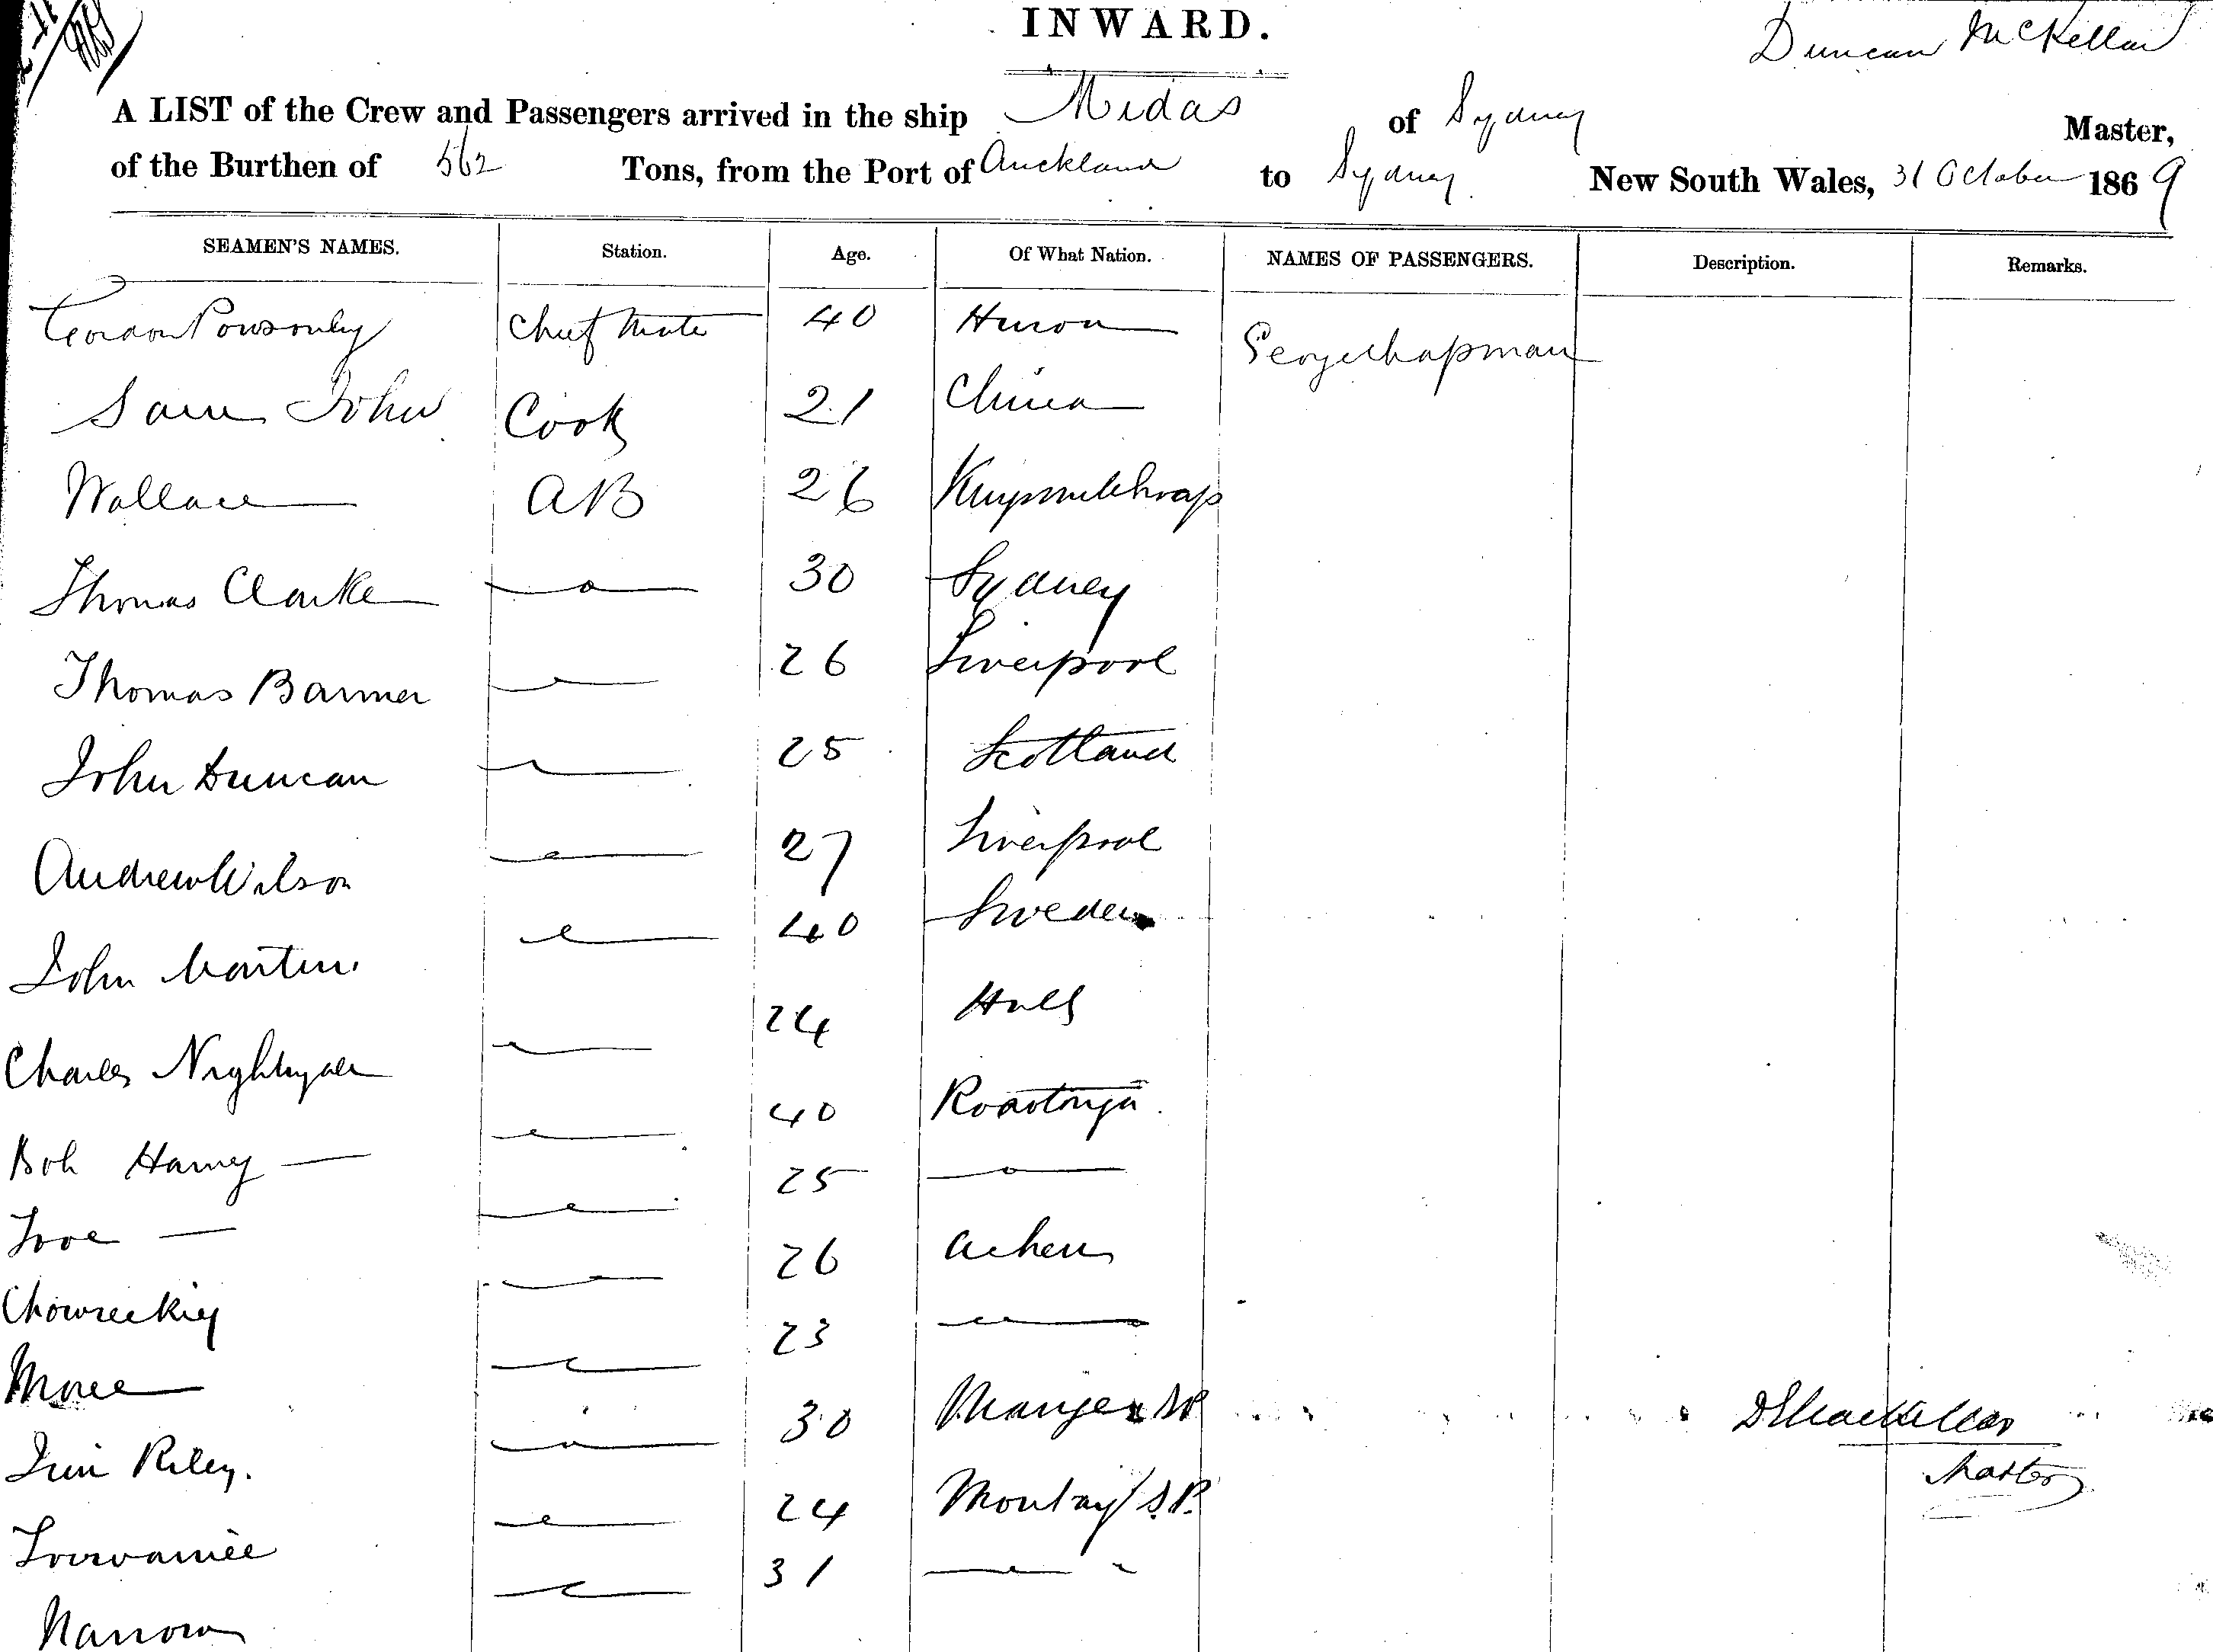 INWARD.
Duncan McKellar
A LIST of the Crew and Passengers arrived in the ship Midas of Sydney Master,
of the Burthen of 562 Tons, from the Port of Auckland to Sydney New South Wales, 31 October 1869
SEAMEN'S NAMES. Station. Age. Of What Nation. NAMES OF PASSENGERS. Description. Remarks.
Gordon Ponsonby Chief Mate 40 George Chapman
Sam John Cook 21 China
Wallace AB 26
Thomas Clarke 30 Sydney
Thomas Barmer 26 Liverpool
John Duncan 25 Scotland
Andrew Wilson 27 Liverpool
John Martin 40 Sweden
Charles Nightingale 24 Hull
Bob Harvey 40
25
26
23
Jim Riley. 30
24
Narrow 31
Master